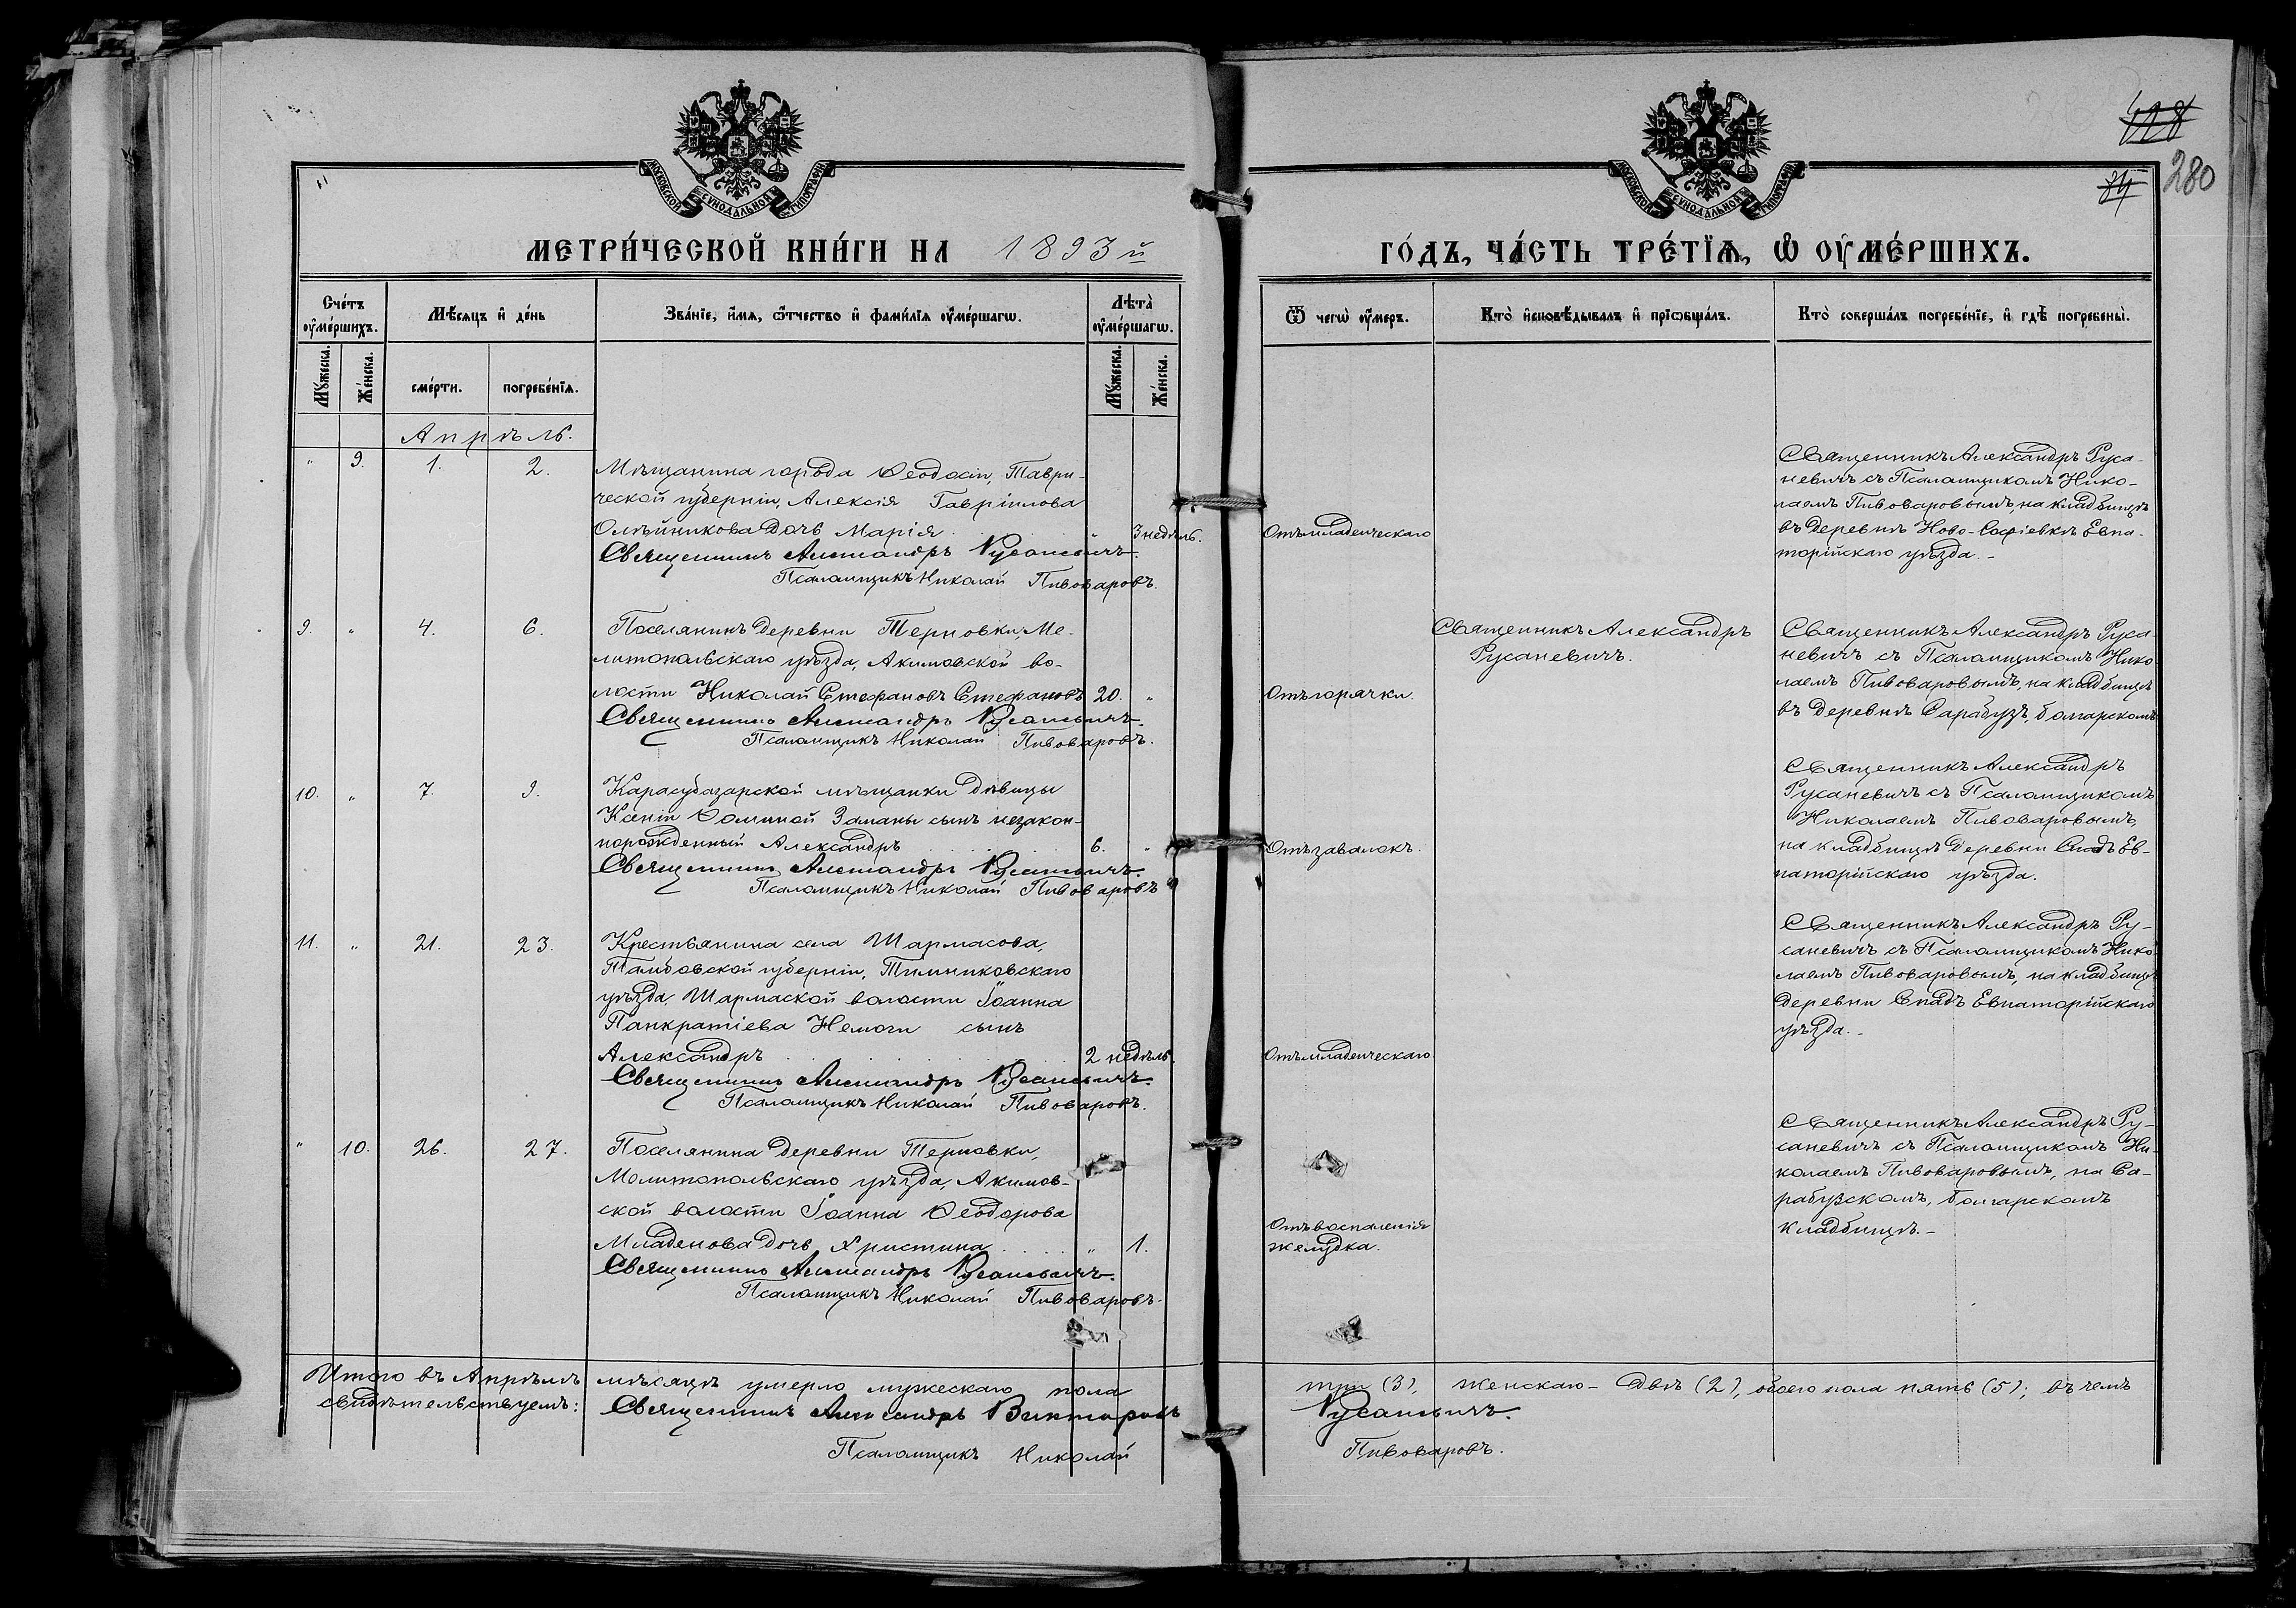 МОСКОВСКОЙ СѴНОДАЛЬНОЙ ТИПОГРАФІИ
МОСКОВСКОЙ СѴНОДАЛЬНОЙ ТИПОГРАФІИ
280
МЕТРИ́ЧЕСКОЙ КНИ́ГИ НА 1893й
ГО́ДЪ, ЧА́СТЬ ТРЕ́ТІѦ, Ѡ ОУМЕ́РШИХЪ.
Сче́тъ оуме́ршихъ.
Мѣ́сяцъ и де́нь
Зва́ніе, и́мя, ѻ́тчество и фами́лія оуме́ршагѡ.
Лѣта̀ оуме́ршагѡ.
Ѿ чегѡ̀ оу́меръ.
Кто̀ исповѣ́дывалъ и пріѡбща́лъ.
Кто̀ соверша́лъ погребе́ніе, и гдѣ̀ погребены̀.
Му́жеска.
Же́нска.
сме́рти.
погребе́нія.
Му́жеска.
Же́нска.
Апрѣль.
" 9. 1. 2.
Мѣщанина города Ѳеодосіи, Таври-
ческой губерніи, Алексія Гавріилова
Олѣйникова дочь Марія " 3 недѣль.
Священникъ Александръ Русаневичъ.
Псаломщикъ Николай Пивоваровъ.
Отъ младенческаго
Священникъ Александръ Руса-
невичъ съ Псаломщикомъ Нико-
лаемъ Пивоваровымъ, на кладбищѣ
въ деревнѣ Ново-Софіевкѣ Евпа-
торійскаго уѣзда.-
9. " 4. 6.
Поселянинъ деревни Терновки, Ме-
литопольскаго уѣзда, Акимовской во-
лости Николай Стефановъ Стефановъ 20. "
Священникъ Александръ Русаневичъ.
Псаломщикъ Николай Пивоваровъ.
Отъ горячки.
Священникъ Александръ
Русаневичъ.
Священникъ Александръ Руса-
невичъ съ Псаломщикомъ Нико-
лаемъ Пивоваровымъ, на кладбищѣ
въ деревнѣ Сарабузъ, болгарскомъ
10. " 7. 9.
Карасубазарской мѣщанки дѣвицы
Ксеніи Ѳоминой Заманы сынъ незакон-
норожденный Александръ 6. "
Священникъ Александръ Русаневичъ.
Псаломщикъ Николай Пивоваровъ
Отъ завалокъ.
Священникъ Александръ
Русаневичъ съ Псаломщикомъ
Николаемъ Пивоваровымъ,
на кладбищѣ деревни Спадъ Ев-
паторійскаго уѣзда.
11. " 21. 23.
Крестьянина села Шармасова,
Тамбовской губерніи, Тимниковскаго
уѣзда, Шармаской волости Іоанна
Панкратіева Немоги сынъ
Александръ 2 недѣль.
Священникъ Александръ Русаневичъ.
Псаломщикъ Николай Пивоваровъ.
Отъ младенческаго
Священникъ Александръ Ру-
саневичъ съ Псаломщикомъ Нико-
лаемъ Пивоваровымъ, на кладбищѣ
деревни Спадъ Евпаторійскаго
уѣзда.-
" 10. 26. 27.
Поселянина деревни Терновки,
Мелитопольскаго уѣзда, Акимов-
ской волости Іоанна Ѳеодорова
Младенова дочь Христина " 1.
Священникъ Александръ Русаневичъ.
Псаломщикъ Николай Пивоваровъ.
Отъ воспаленія
желудка.
Священникъ Александръ Ру-
саневичъ съ Псаломщикомъ Ни-
колаемъ Пивоваровымъ, на Са-
рабузскомъ, болгарскомъ
кладбищѣ.-
Итого въ Апрѣлѣ мѣсяцѣ умерло мужескаго пола три (3), женскаго - двѣ (2), обоего пола пять (5); въ чемъ
свидѣтельствуемъ: Священникъ Александръ Викторовъ Русаневичъ.
Псаломщикъ Николай Пивоваровъ.